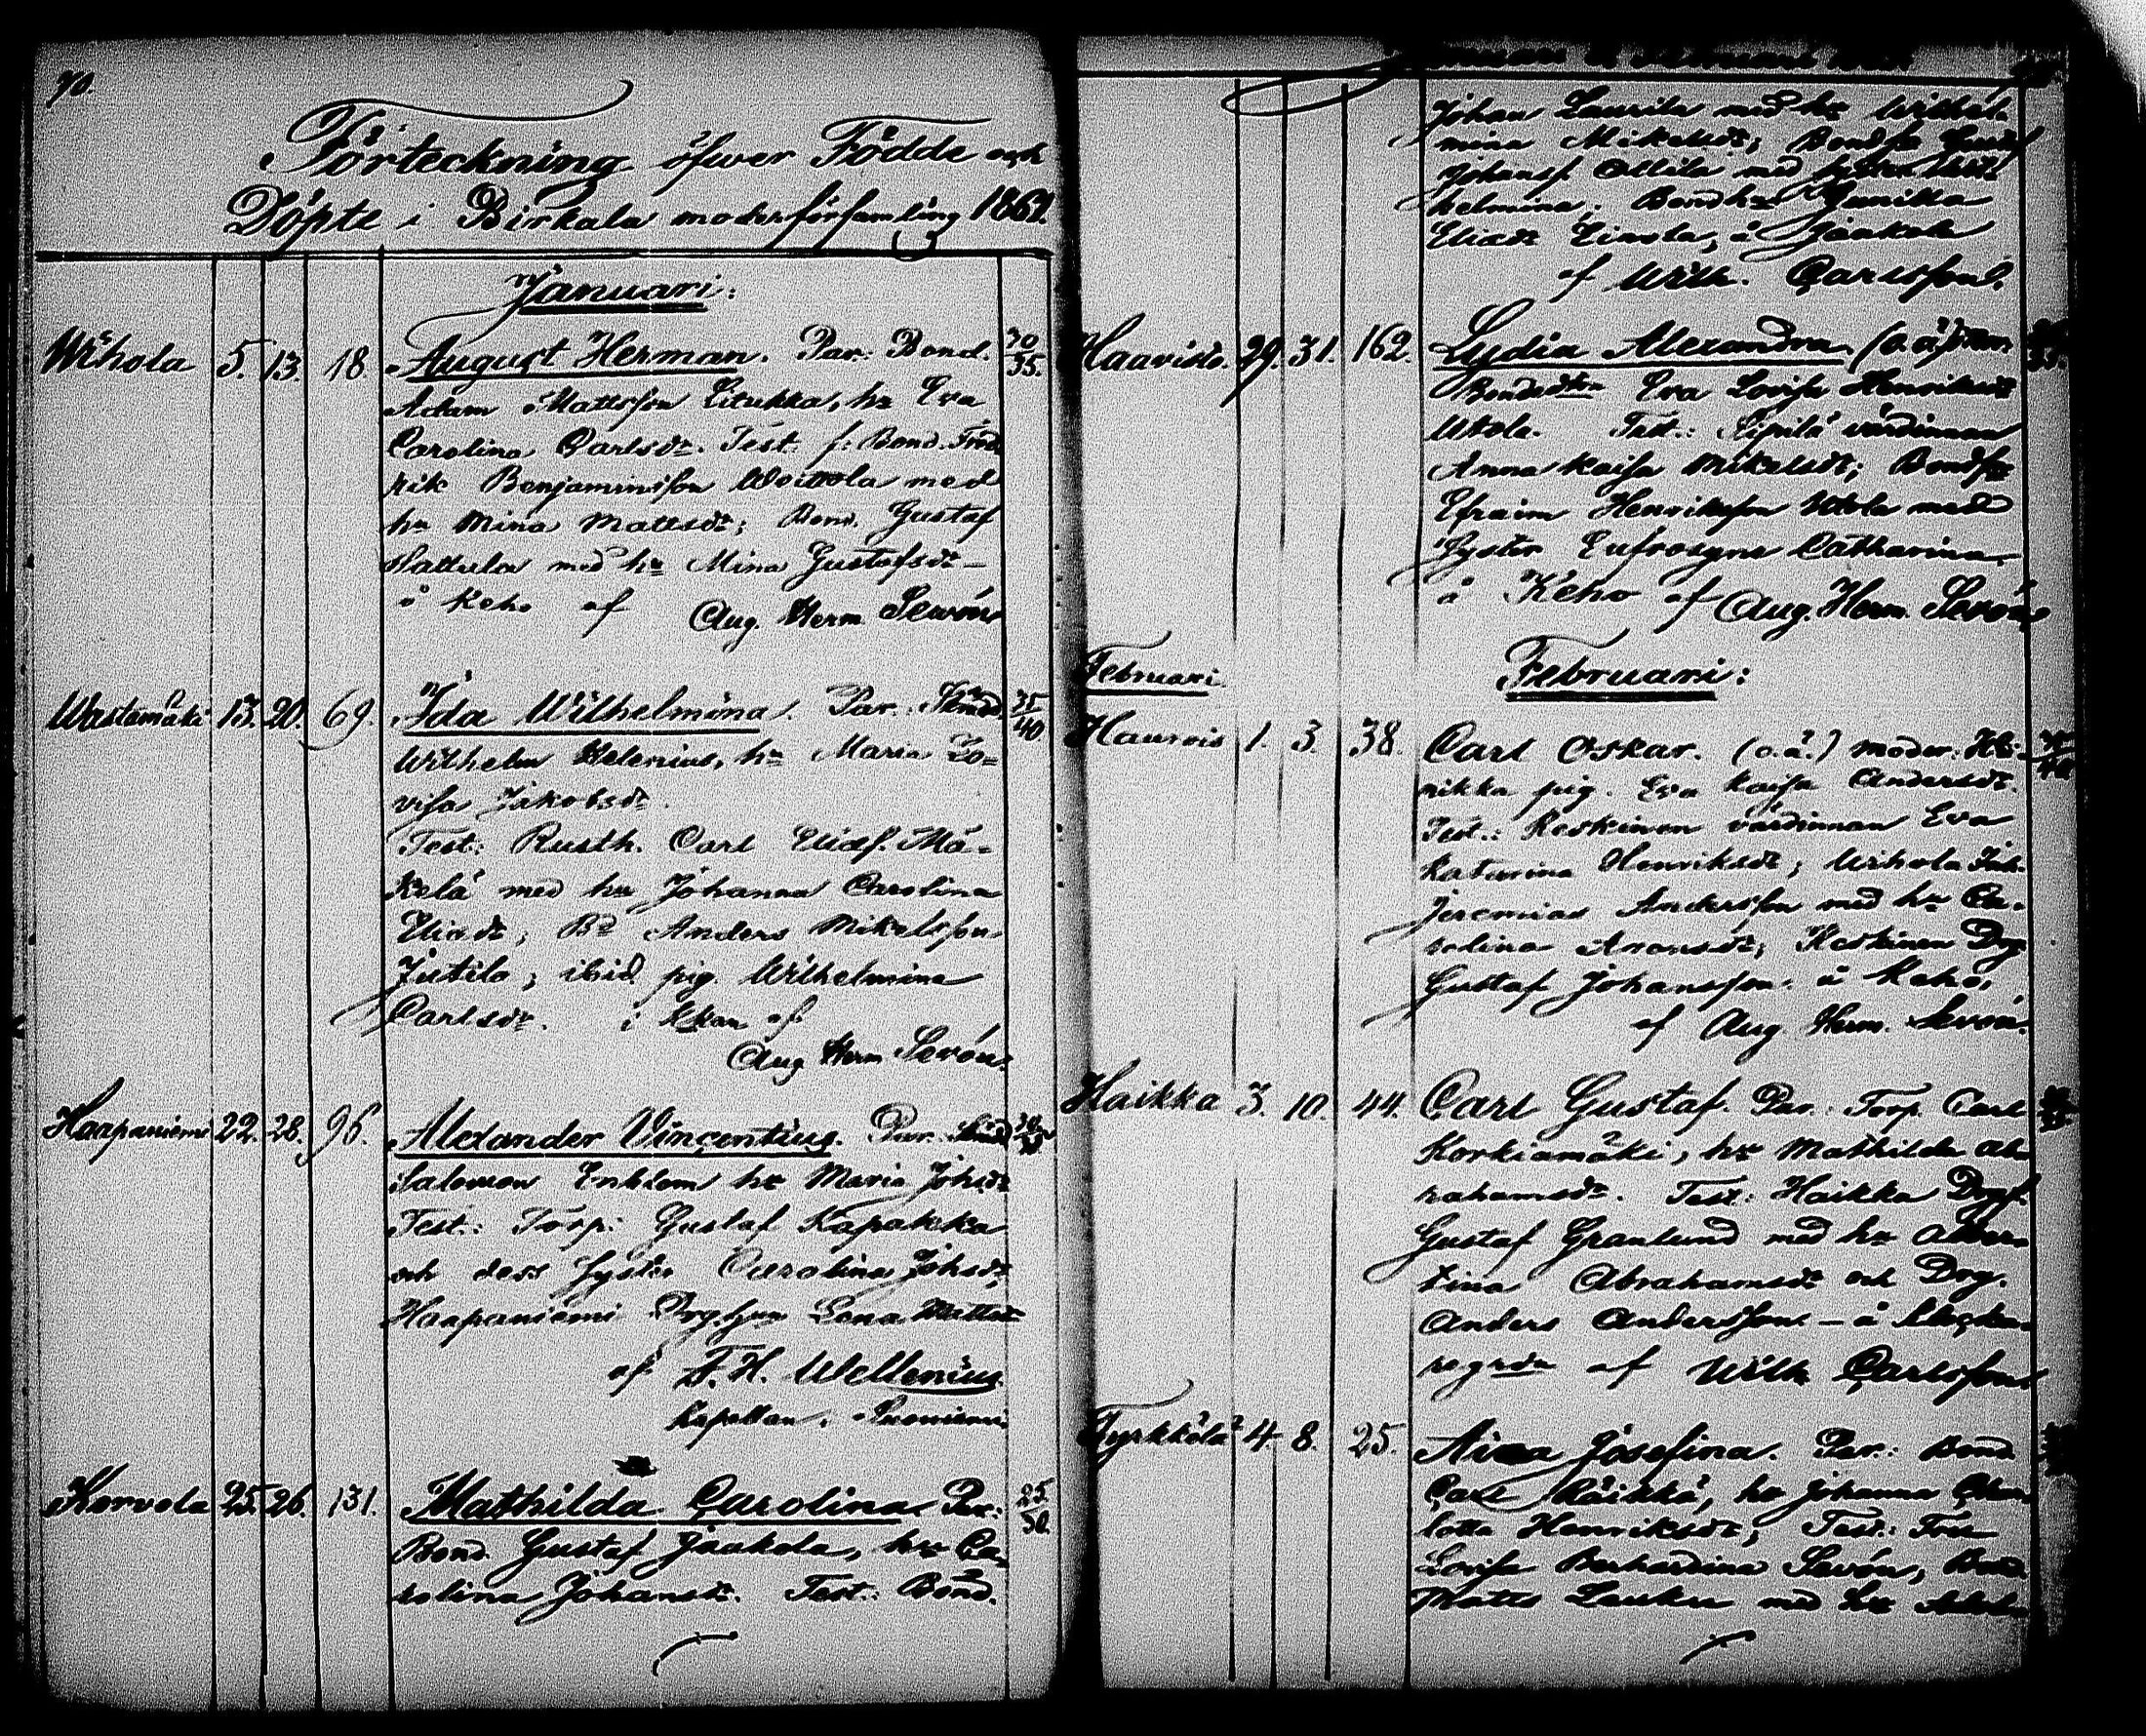 90.
Förteckning öfwer Födde och
Döpte i Birkala moderförsamling 1862.
Januari:
Wihola 5. 13. 18. August Herman. Par: Bond. 30/35.
Adam Mattsson Eitukka, hu Eva
Carolina Carlsdr. Test. f: Bond. Fred
rik Benjaminsson Woittola med
hu Mina Mattsdr; Bond. Gustaf
Sattula med hu Mina Gustafsdr –
å Keho af Aug. Herm. Sevón
Wastamäki 13. 20. 69. Ida Wilhelmina. Par: 35/40
Wilhelm Helenius, hu Maria Lo=
visa Jakobsdr.
Test: Rusth. Carl Eliæs. Mä-
kelä med hu Johanna Carolina
Eliædr; Bd Anders Mikelsson
Jutila; ibid. pig. Wilhelmina
Carlsdr. i Kkan af
Aug Herm Sevón.
Haapaniemi 22. 28. 96. Alexander Vincentius. Par.
Salomon Enblom hu Maria Johsdr
Test: Torp: Gustaf Kapakka
och dess syster Carolina Johsdr
Haapaniemi Drgshu Lena Mattsdr
af F. H. Wellenius.
Kapellan i Suoniemi
Korvola 25. 26. 131. Mathilda Carolina Par: 25/30.
Bond. Gustaf Jaakola, hu Ca-
rolina Johansdr. Test: Bond.
Johan Laurila med hu Wilhel-
mina Mikelsdr; Bondso
Johanss. Ollila med syster Wil
helmina. Bondhu Gunilla
Eliædr Einola, å Jaakola
af Wilh. Carlsson.
Haavisto. 29. 31. 162. Lydia Alexandra. (o.ä.) Mor.
Bondedtr Eva Lovisa Henriksdr
Utola. Test.: Sipilä värdinnan
Anna Kaisa Mikelsdr; Bondso
Efraim Henriksson Utola med
Syster Eufrosyne Catharina
å Keho af Aug. Herm. Sevón
Februari.
Februari:
Haavisto 1. 3. 38. Carl Oskar. (o.ä.) moder: He-
rikka pig. Eva Kaisa Andersdr.
Test.: Keskinen värdinnan Eva
Katarina Henriksdr; Wihola
Jeremias Andersson med hu Ca-
rolina Aronsdr; Keskinen Drg
Gustaf Johansson. å Keho,
af Aug Herm. Sevón.
Haikka 3. 10. 44. Carl Gustaf. Par: Torp. Carl
Korkiamäki, hu Mathilda Ab
rahamsdr. Test: Haikka Drgf.
Gustaf Granlund med hu Alber
tina Abrahamsdr och Drg.
Anders Andersson – å klocka
regrdn af Wilh Carlsson
Tyrkkölä 4. 8. 25. Aina Josefina. Par: Bond
Carl Räikkä, hu Johanna Char
lotta Henriksdr; Test: Fru
Lovisa Bernhardina Sevón, Bond.
Matts Lauku med hu